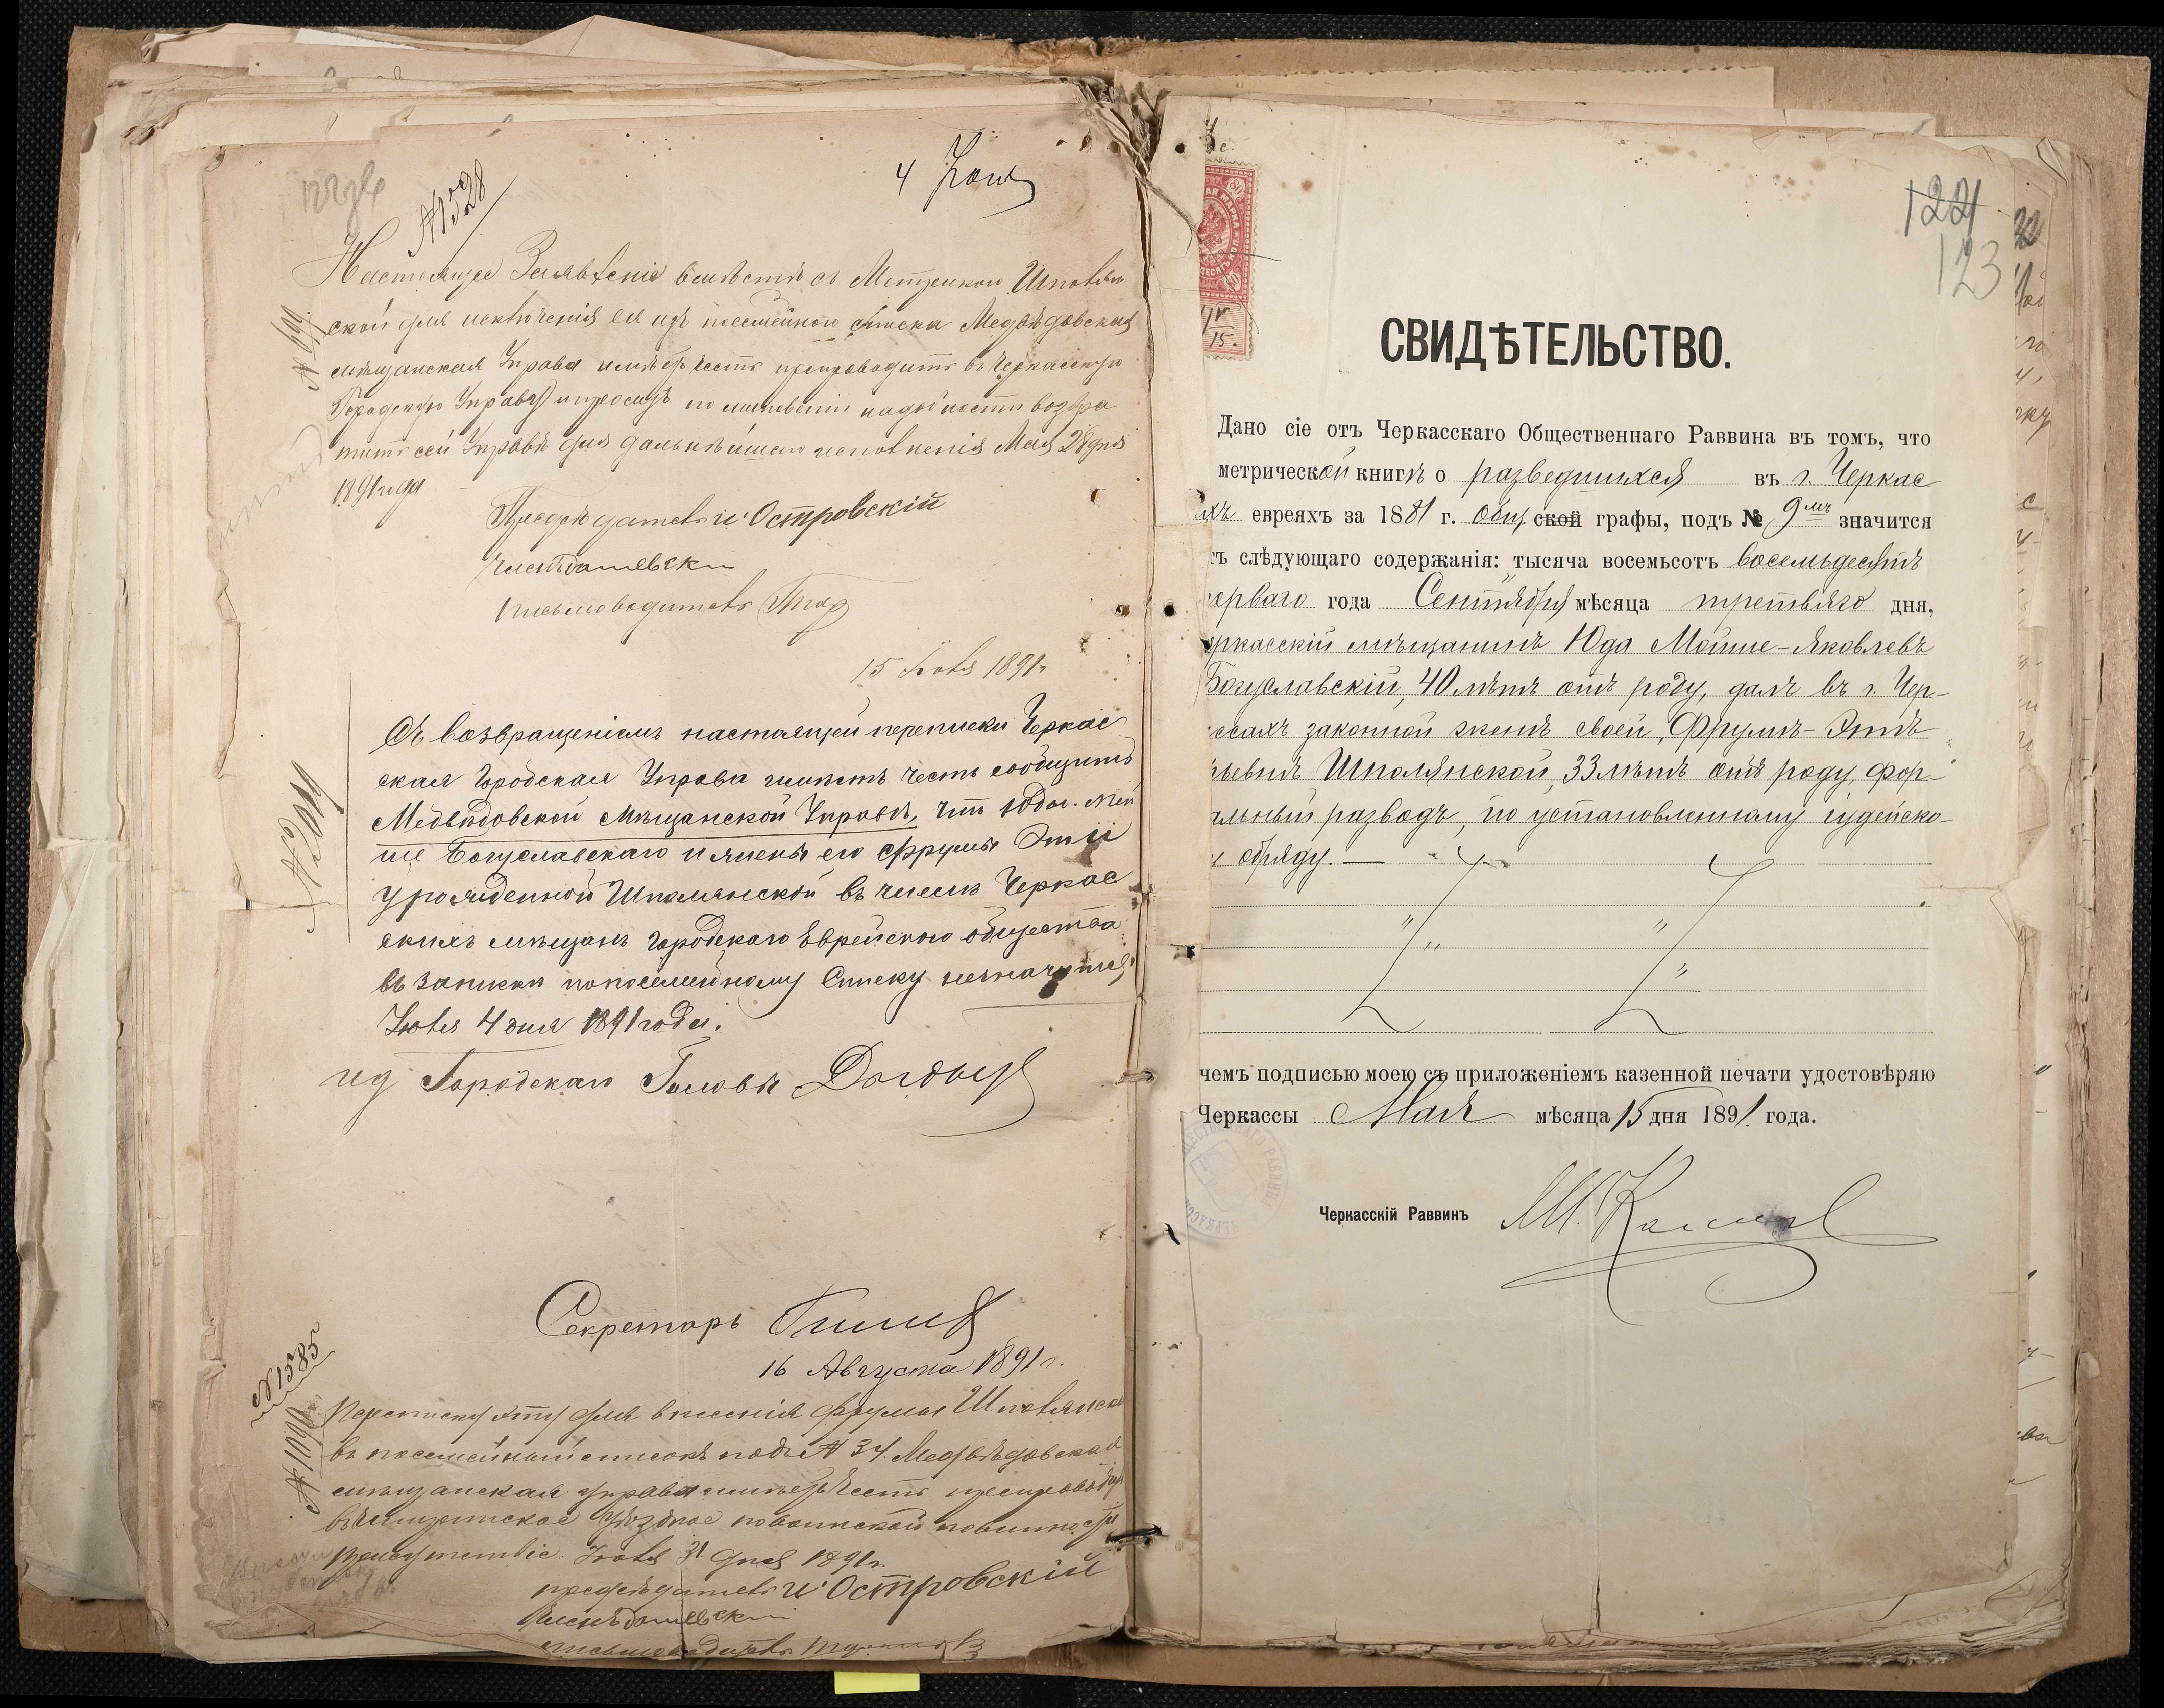 №1528
4 Июня
Настоящее Заявленіе вмѣстѣ съ Метрикой Шполян
ской для исключенія ея изъ посемейного списка Медвѣдовская
мѣщанская Управа имѣетъ честь препроводить въ Черкасскую
Городскую Управу и проситъ по миновеніи надобности возвра
тить сей Управѣ для дальнѣйшаго исполненія Мая 28 дня
1891 года
№ 691
Предсѣдатель И. Островскій
Письмоводитель
15 Іюля 1891 г.
Съ возвращеніемъ настоящей переписки Черкас
ская Городская Управа имѣетъ честь сообщить
Медвѣдовской Мѣщанской Управѣ, что Юда-Мой
ше Богуславскаго и жены его Фрумы Эти
урожденной Шполянской въ числѣ Черкас
скихъ мѣщанъ городского Еврейского общества
въ записки по посемейному Списку не значится
Іюля 4 дня 1891 года.
ид Городского Головы
Секретарь
16 Августа 1891 г.
№1585
№ 1090
Переписку эту для внесенія Фрумы Шполянской
въ посемейный списокъ подъ № 34 Медвѣдовская
мѣщанская управа имѣетъ честь препроводить
въ Чигиринское Уѣздное по воинской повинности
Присутствіе Іюля 31 дня 1891 г.
предсѣдатель И. Островскій
письмоводитель
122
123
СВИДѢТЕЛЬСТВО.
15.
Дано сіе отъ Черкасскаго Общественнаго Раввина въ томъ, что
метрической книгѣ о разведшихся въ г. Черкас
ахъ евреяхъ за 1881 г. общ ской графы, подъ № 9мъ значится
тъ слѣдующаго содержанія: тысяча восемьсотъ восемьдесятъ
перваго года Сентября мѣсяца третьяго дня,
еркасскій мѣщанинъ Юда Мойше-Яковлевъ
Богуславскій, 40 лѣтъ отъ роду, далъ въ г. Чер-
ссахъ законной женѣ своей, Фрумѣ-Этѣ
ьевнѣ Шполянской, 33 лѣтъ отъ роду, фор-
альный разводъ, по установленному іудейско-
у обряду. —
чемъ подписью моею съ приложеніемъ казенной печати удостовѣряю
Черкассы Мая мѣсяца 15 дня 1891 года.
Черкасскій Раввинъ